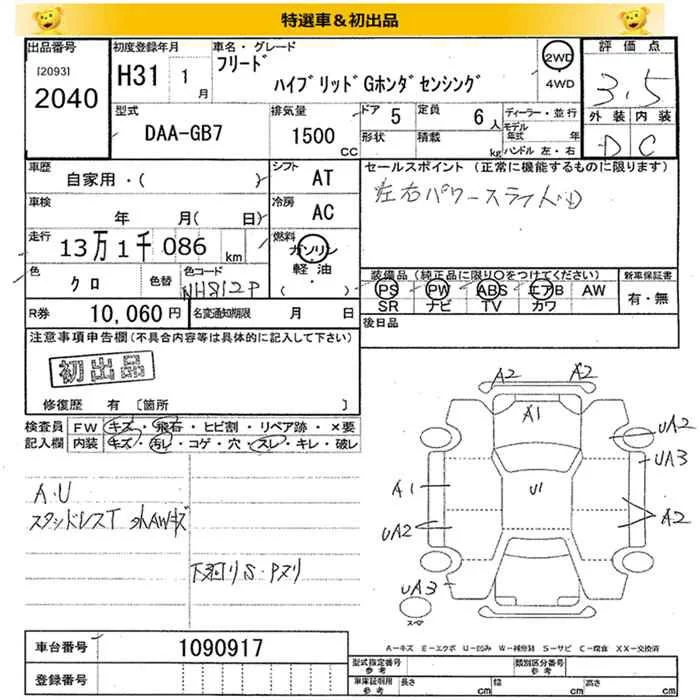 特選車＆初出品
出品番号
[2093]
2040
初度登録年月
H31 1月
車名・グレード
フリード
ハイブリッドGホンダセンシング
2WD
4WD
評価点
3.5
外装 内装
D C
型式
DAA-GB7
排気量
1500 CC
ドア 5
定員 6人
形状
積載 kg
ディーラー・並行
モデル年式 年
ハンドル 左・右
車歴
自家用・( )
シフト
AT
セールスポイント (正常に機能するものに限ります)
左右パワースライドD
車検
年 月( 日)
冷房
AC
走行
13万1千086 km
燃料
ガソリン
軽油
( ・ )
色
クロ
色替
色コード
NH812P
装備品 (純正品に限り○をつけてください)
PS PW ABS エアB AW
SR ナビ TV カワ
新車保証書
有・無
R券 10,060円
名変通知期限 月 日
後日品
注意事項申告欄(不具合内容等は具体的に記入して下さい)
初出品
修復歴 有 〔箇所 〕
検査員記入欄
FW キズ・飛石・ヒビ割・リペア跡・×要
内装 キズ・汚レ・コゲ・穴・スレ・キレ・破レ
A.U
スタッドレスT 外AWキズ
下廻りS・Pヌリ
A2 A2
A1
UA2
UA3
A1
U1
A2
UA2
UA3
スペア
A－キズ E－エクボ U－凹み W－補修跡 S－サビ C－腐食 XX－交換済
車台番号 1090917
登録番号
型式指定番号 参考
類別区分番号 参考
車庫証明用 参考
長さ cm
幅 cm
高さ cm